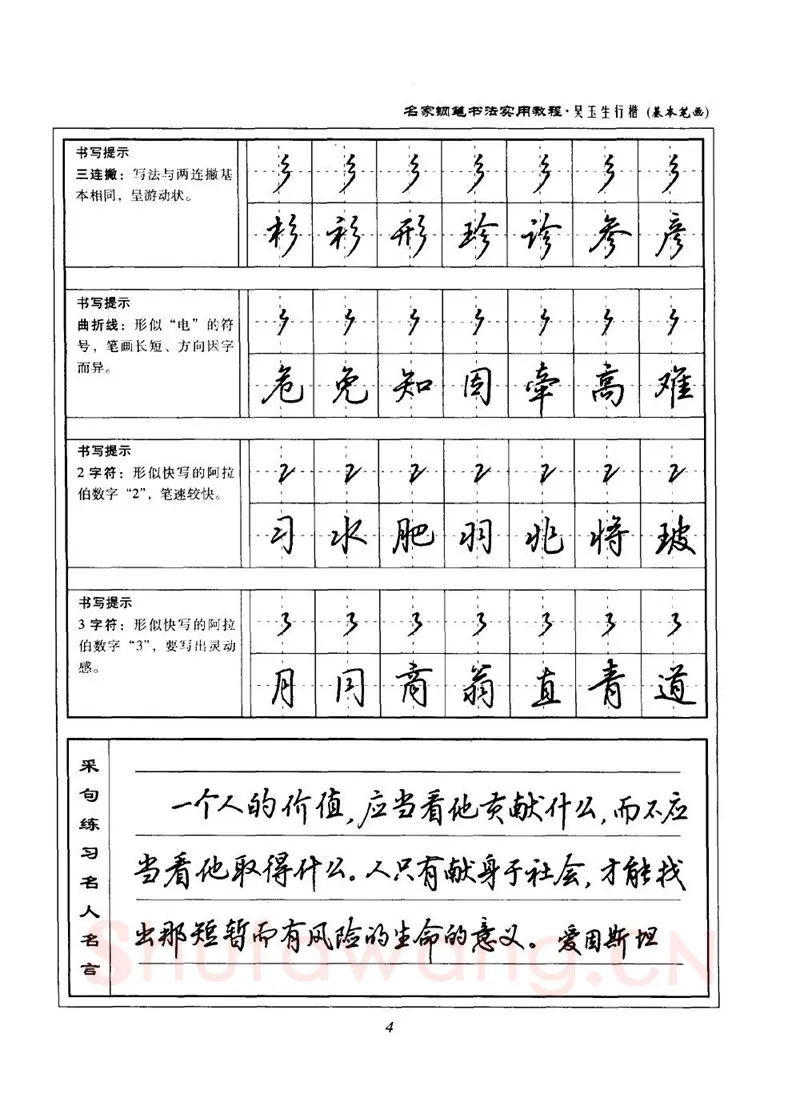 名家钢笔书法实用教程·吴玉生行楷(基本笔画)
书写提示
三连撇：写法与两连撇基
本相同，呈游动状。
杉 衫 形 珍 诊 参 彦
书写提示
曲折线：形似“电”的符
号，笔画长短、方向因字
而异。
危 免 知 因 牵 高 难
书写提示
2字符：形似快写的阿拉
伯数字“2”，笔速较快。
2 2 2 2 2 2 2
习 水 肥 羽 兆 将 玻
书写提示
3字符：形似快写的阿拉
伯数字“3”，要写出灵动
感。
3 3 3 3 3 3 3
月 同 商 翁 直 青 道
采句练习名人名言
一个人的价值,应当看他贡献什么,而不应
当看他取得什么。人只有献身于社会,才能找
出那短暂而有风险的生命的意义。 爱因斯坦
Shufawang.CN
4